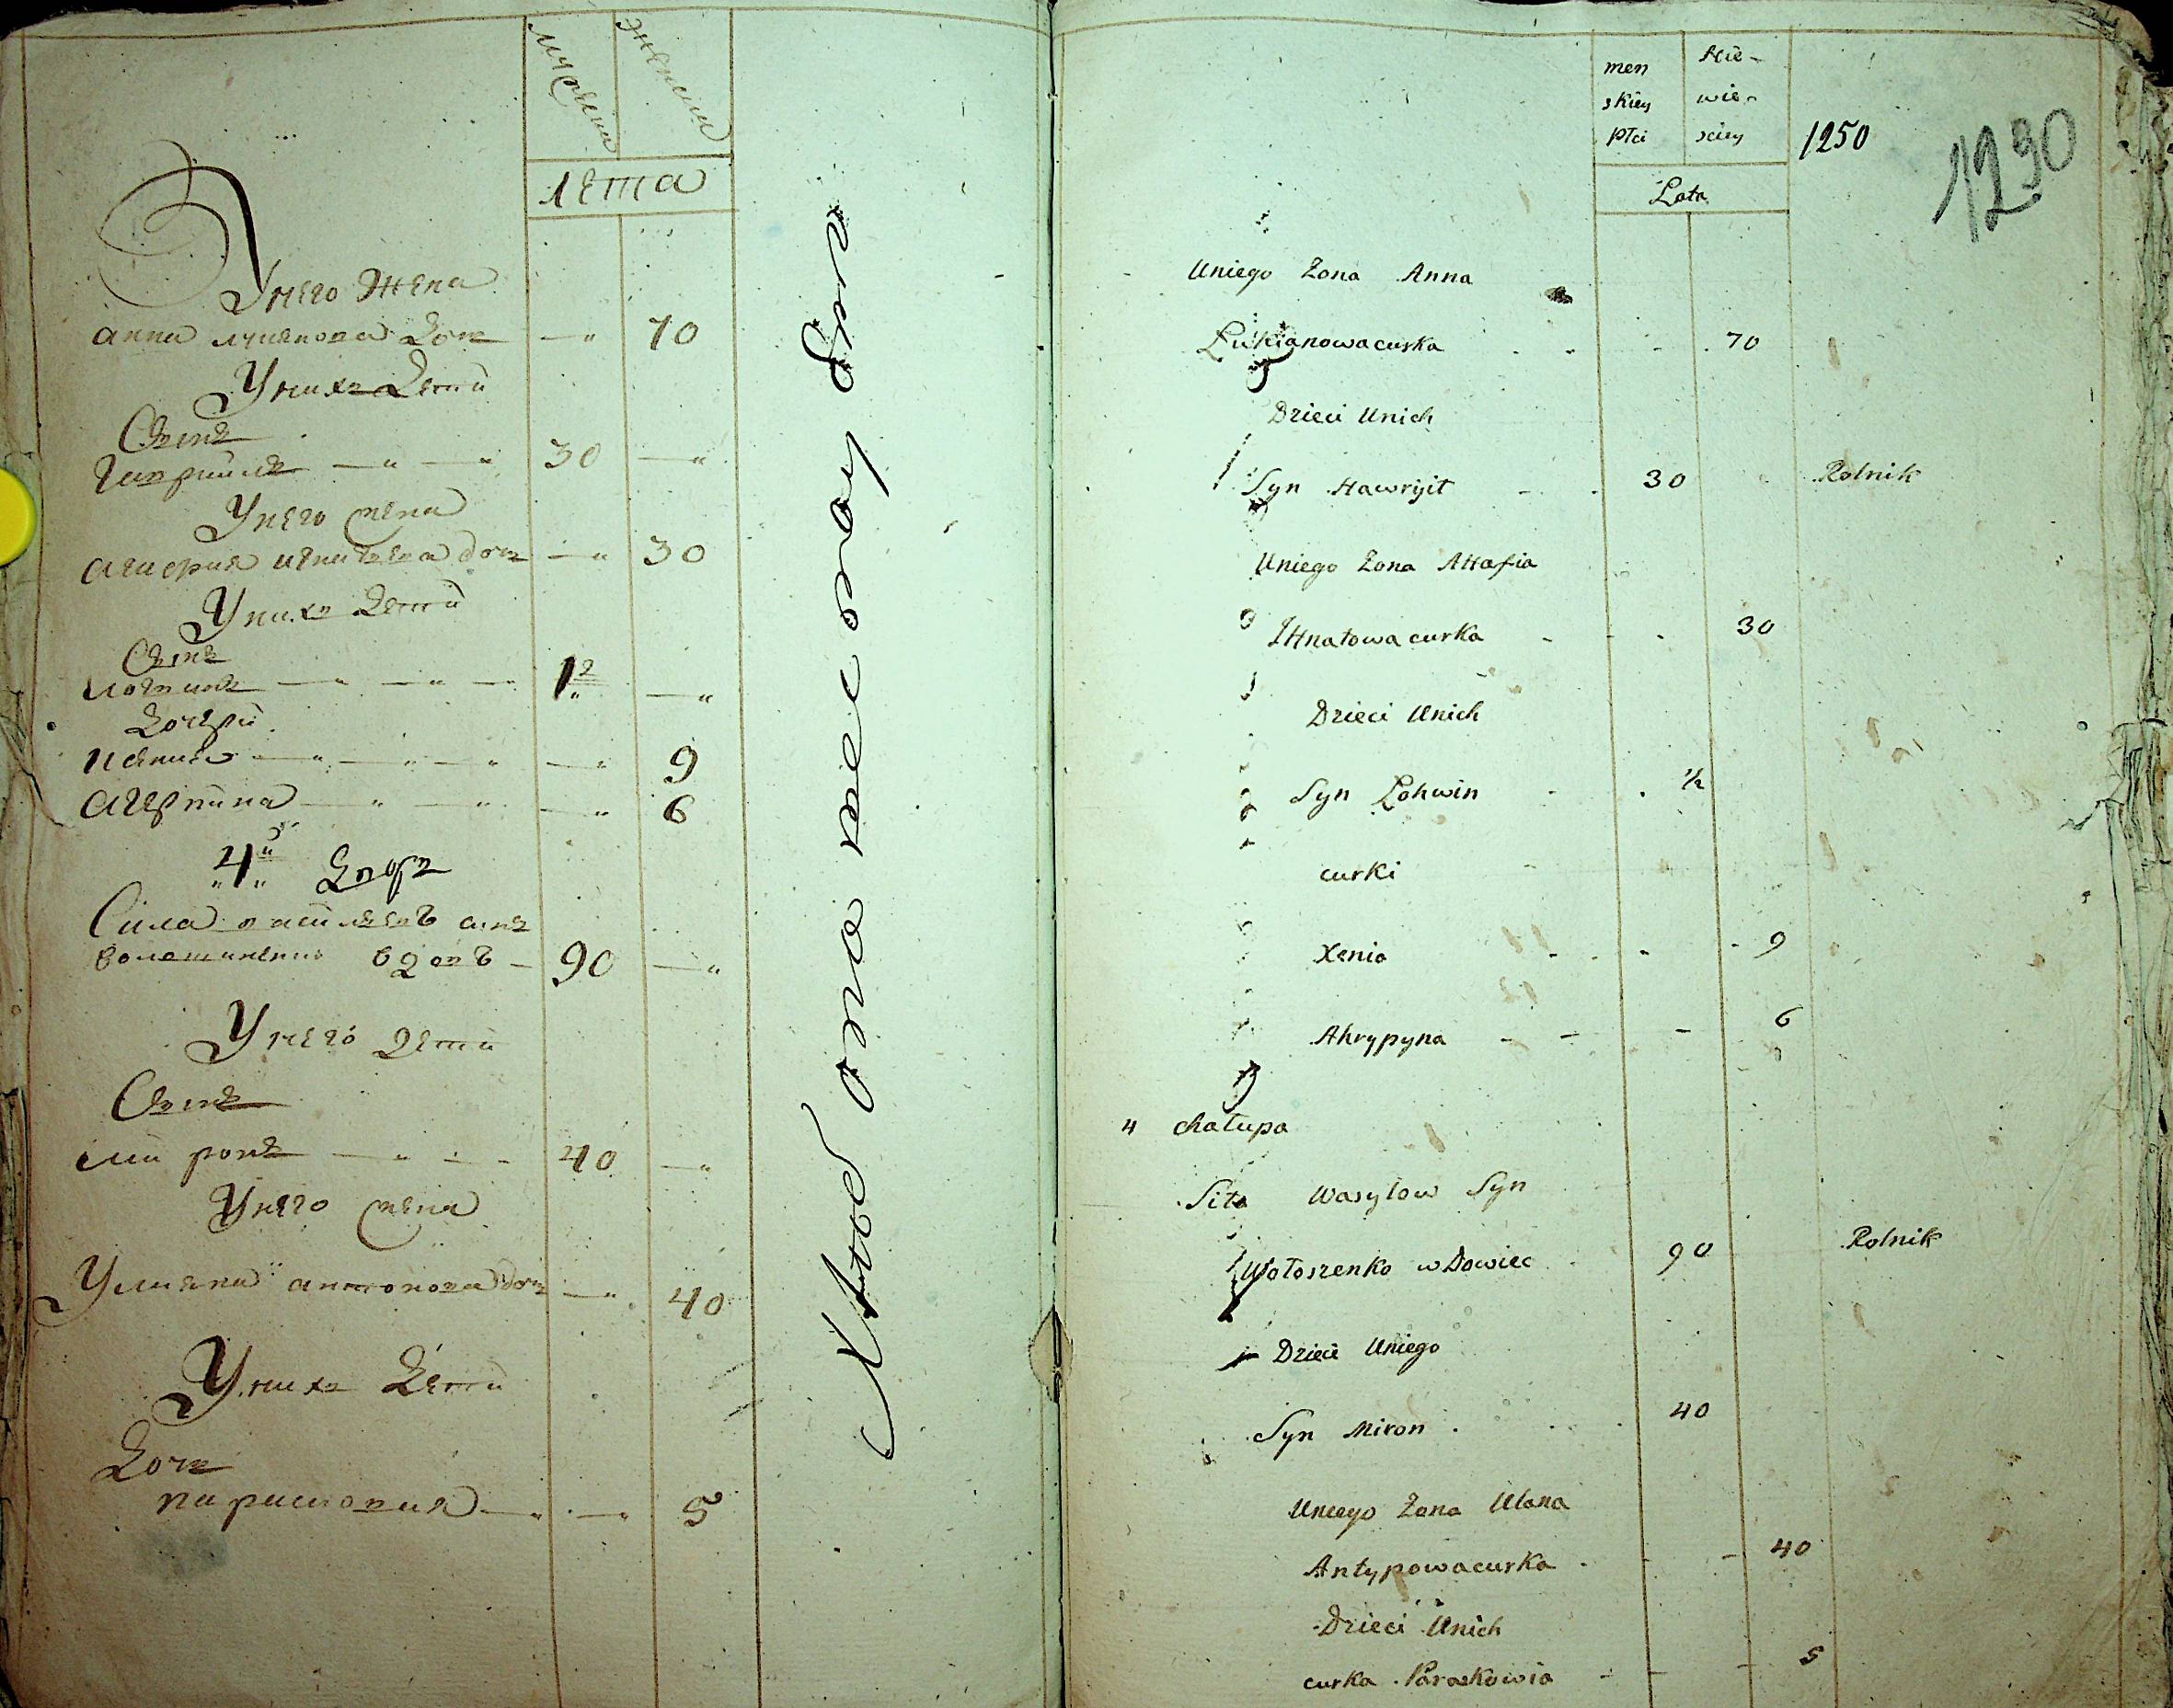 мужеска
женска
лета
У него жена
анна лукянова дочь — 70
У них дети
Сынъ
гаврыило — — 30 —
У него жена
агафия игнатова дочь — 30
У них дети
Сынъ
логвинъ — — — 12 —
дочери
Ксения — — — — 9
агерпина — — — 6
4й двор
Сила василевъ сынъ
волошиненко вдовъ — 90 —
У него дети
Сынъ
мйронъ — — 40 —
У него жена
Улияна антонова дочь — 40
У них дети
Дочь
парасковия — — 5
men Nie-
skiey wie-
Płci sciey
1250
1290
Lata
Uniego Zona Anna
Łukianowa curka 70
Dzieci Unich
Syn Hawryił 30 Rolnik
Uniego Zona AHafia
IHnatowa curka 30
Dzieci Unich
Syn Łohwin ½
curki
Xenia 9
Ahrypyna 6
4 chałupa
Siła Wasylow Syn
Wołoszenko wDowiec 90 Rolnik
Dzieci Uniego
Syn Miron 40
Uniego Zona Ulana
Antypowa curka 40
Dzieci Unich
curka Paraskowia 5